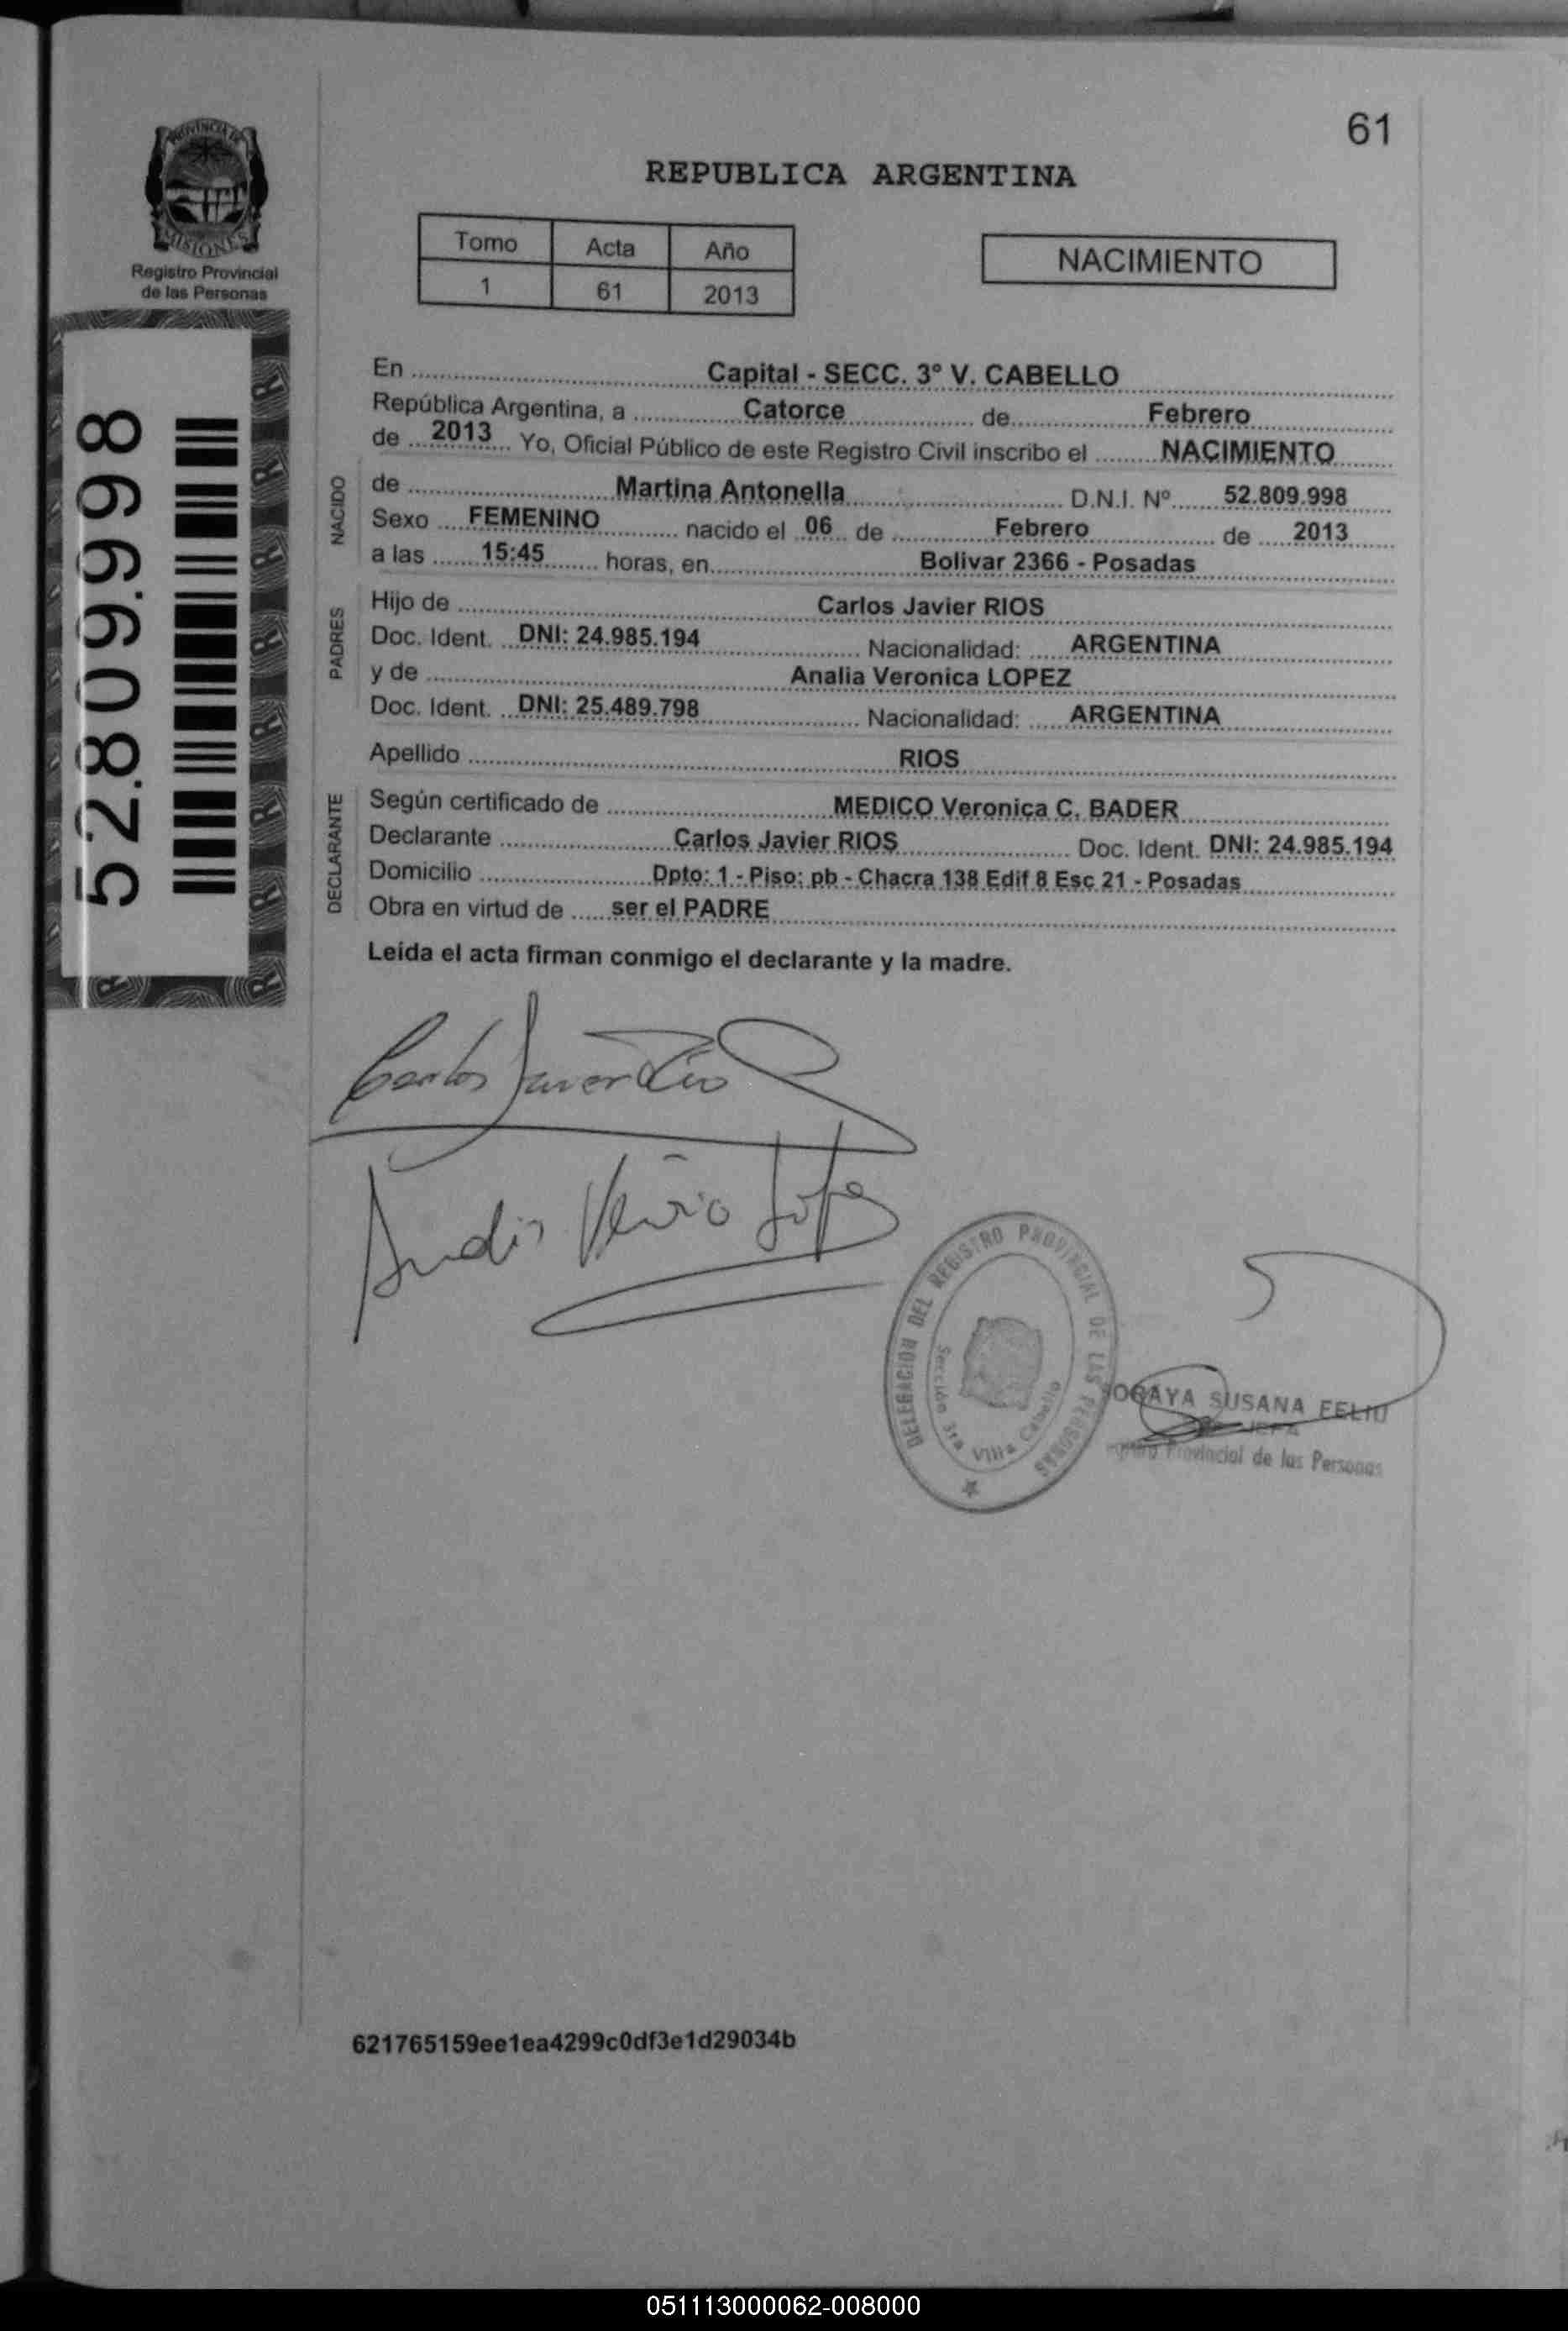 61
PROVINCIA DE
MISIONES
Registro Provincial
de las Personas
REPUBLICA ARGENTINA
Tomo Acta Año
1 61 2013
NACIMIENTO
52.809.998
En Capital - SECC. 3° V. CABELLO
República Argentina, a Catorce de Febrero
de 2013 Yo, Oficial Público de este Registro Civil inscribo el NACIMIENTO
NACIDO
de Martina Antonella D.N.I. Nº 52.809.998
Sexo FEMENINO nacido el 06 de Febrero de 2013
a las 15:45 horas, en Bolivar 2366 - Posadas
PADRES
Hijo de Carlos Javier RIOS
Doc. Ident. DNI: 24.985.194 Nacionalidad: ARGENTINA
y de Analia Veronica LOPEZ
Doc. Ident. DNI: 25.489.798 Nacionalidad: ARGENTINA
Apellido RIOS
DECLARANTE
Según certificado de MEDICO Veronica C. BADER
Declarante Carlos Javier RIOS Doc. Ident. DNI: 24.985.194
Domicilio Dpto: 1 - Piso: pb - Chacra 138 Edif 8 Esc 21 - Posadas
Obra en virtud de ser el PADRE
Leida el acta firman conmigo el declarante y la madre.
Carlos Javier
DELEGACION DEL REGISTRO PROVINCIAL DE LAS PERSONAS
Sección 3ra Villa Cabello
SUSANA FELIU
Provincial de las Personas
621765159ee1ea4299c0df3e1d29034b
051113000062-008000